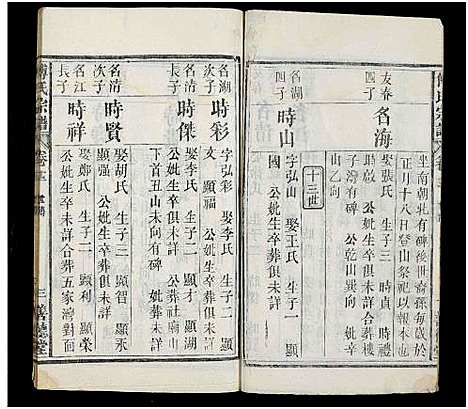 傅氏宗譜
坐南朝 有碑後世裔孫每歲於
正月十八日登山祭祀以報本也
友春四子
名海
娶張氏 生子三 時貞 時禮
時啟 公妣生卒俱未詳合葬樓
子公乾山巽向 妣辛
山乙向
十三世
名湖四子
時山
字弘山 娶王氏 生子二 顯
國 公妣生卒俱未詳
名湖次子
時彩
字弘彩 娶李氏 生子一 顯
文
名清長子
時傑
娶李氏 生子二 顯才 顯湖
公妣生卒俱未詳 公葬社廟山
下首丑山未向有碑 妣葬
名清次子
時賢
娶胡氏 生子二 顯利 顯永
公妣生卒俱未詳
名江長子
時祥
娶鄭氏 生子二 顯強 顯榮
公妣生卒未詳合葬五家灣對面
傅氏宗譜
卷三
三
善德堂